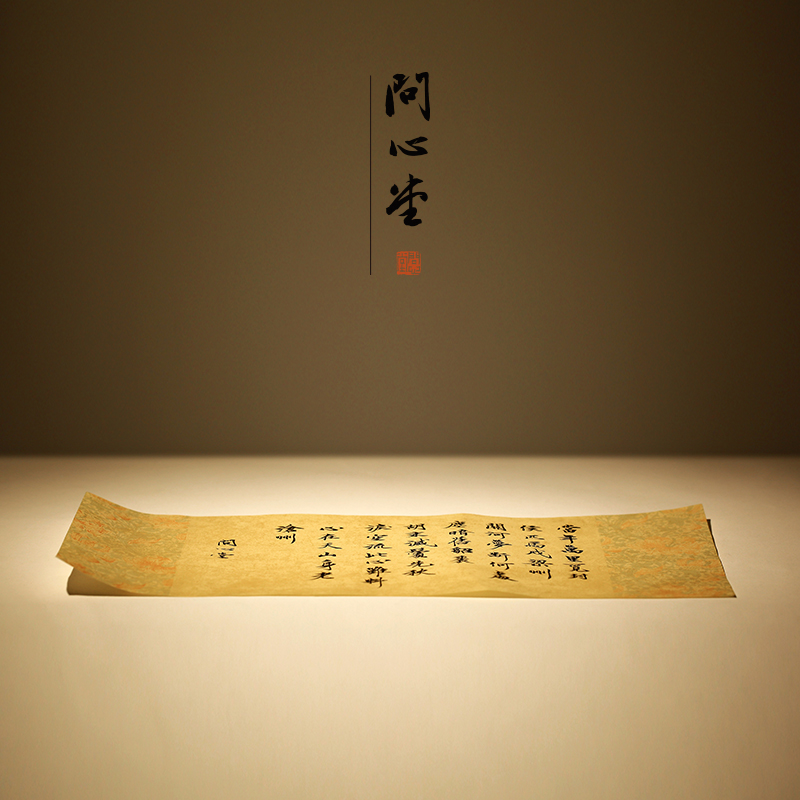 問心堂
當年萬里覓封
侯匹馬戍梁州
關河夢斷何處
塵暗舊貂裘
胡未滅鬢先秋
淚空流此心難料
心在天山身老
滄州
問心堂